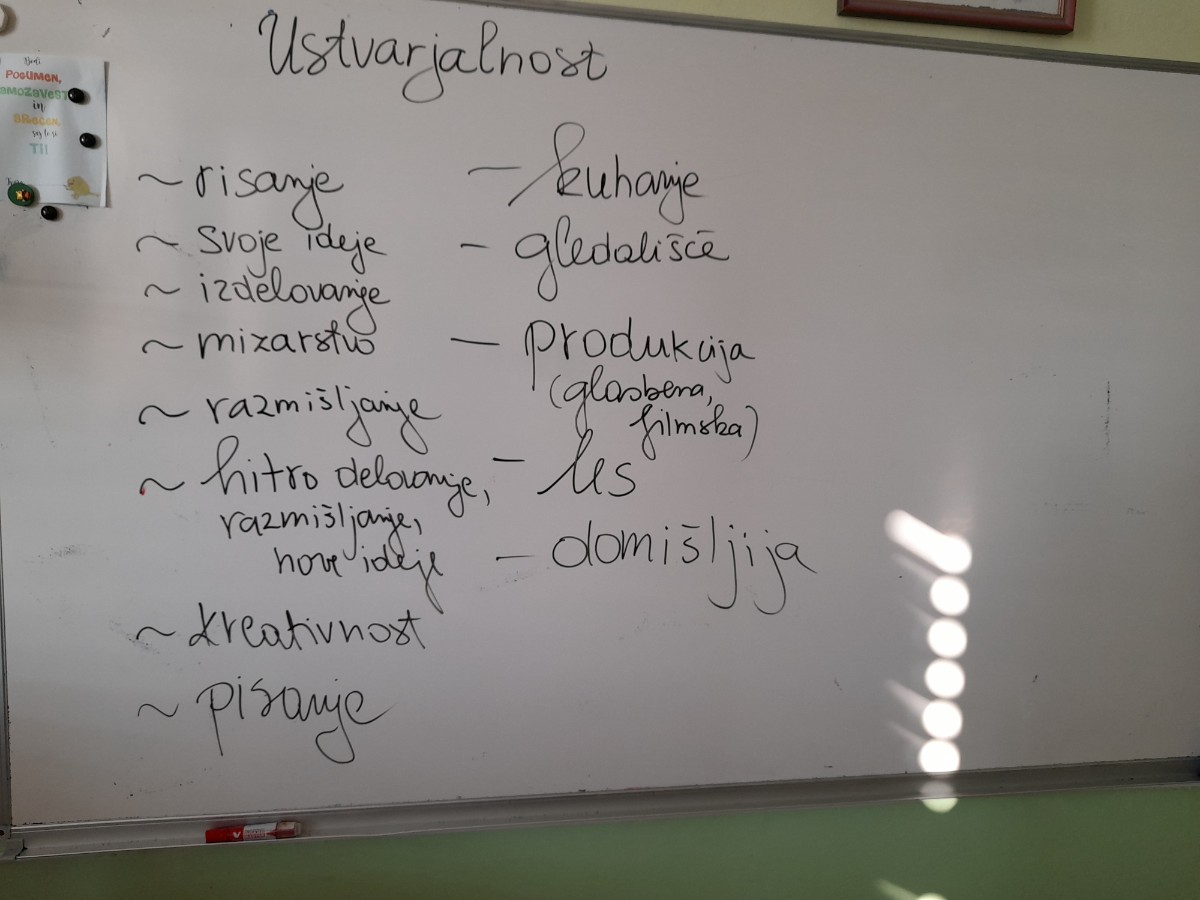 Ustvarjalnost
POGUMEN,
in
SREČEN,
TI!
~ risanje
~ svoje ideje
~ izdelovanje
~ mizarstvo
~ razmišljanje
~ hitro delovanje,
razmišljanje,
nove ideje
~ kreativnost
~ pisanje
- kuhanje
- gledališče
- produkcija
(glasbena,
filmska)
- les
- domišljija